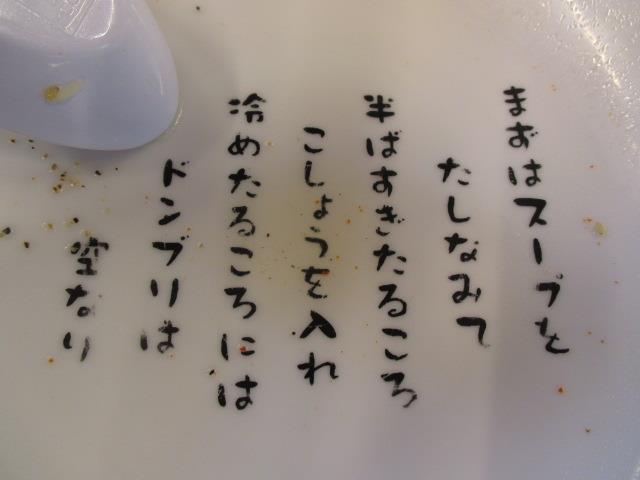 まずはスープを
たしなみて
半ばすぎたるころ
こしょうを入れ
冷めたるころには
ドンブリは
空なり